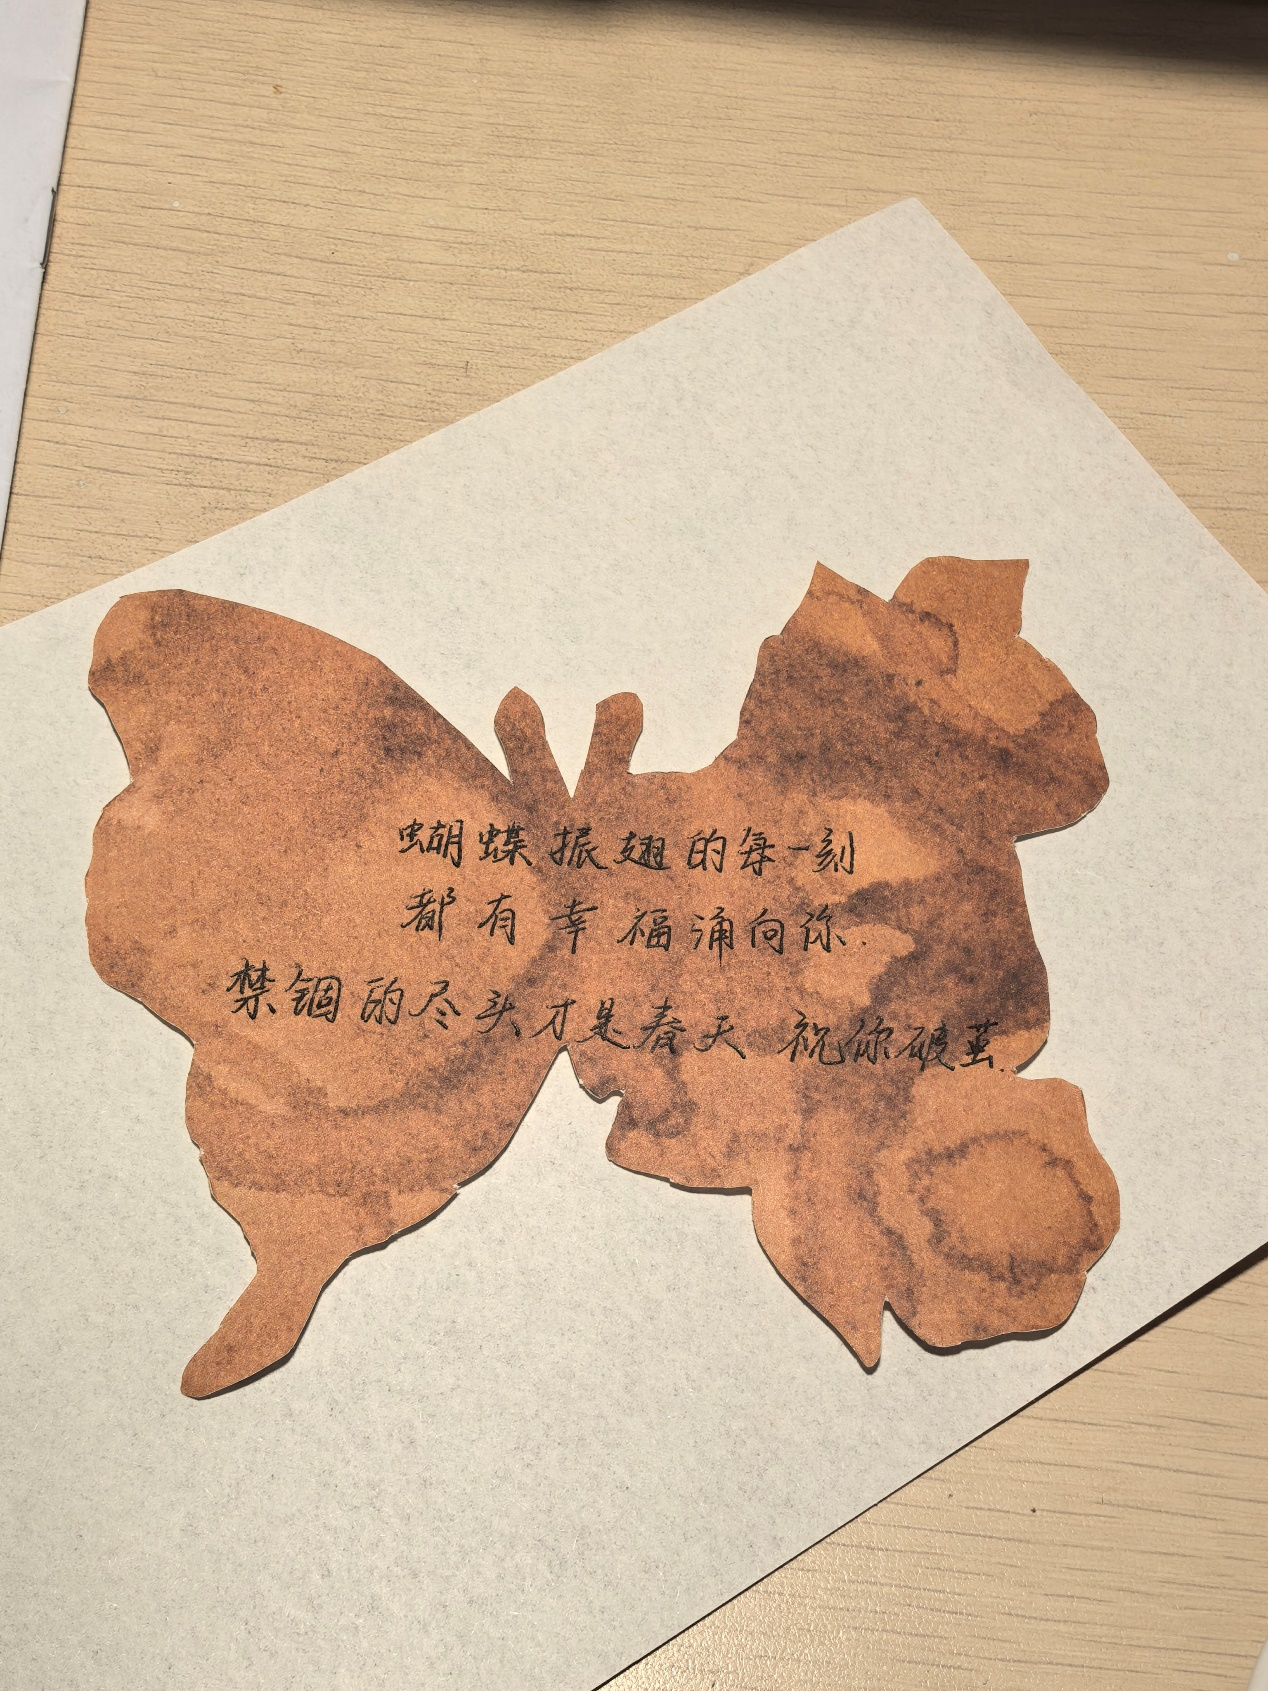 蝴蝶振翅的每一刻
都有幸福涌向你.
禁锢的尽头才是春天 祝你破茧.